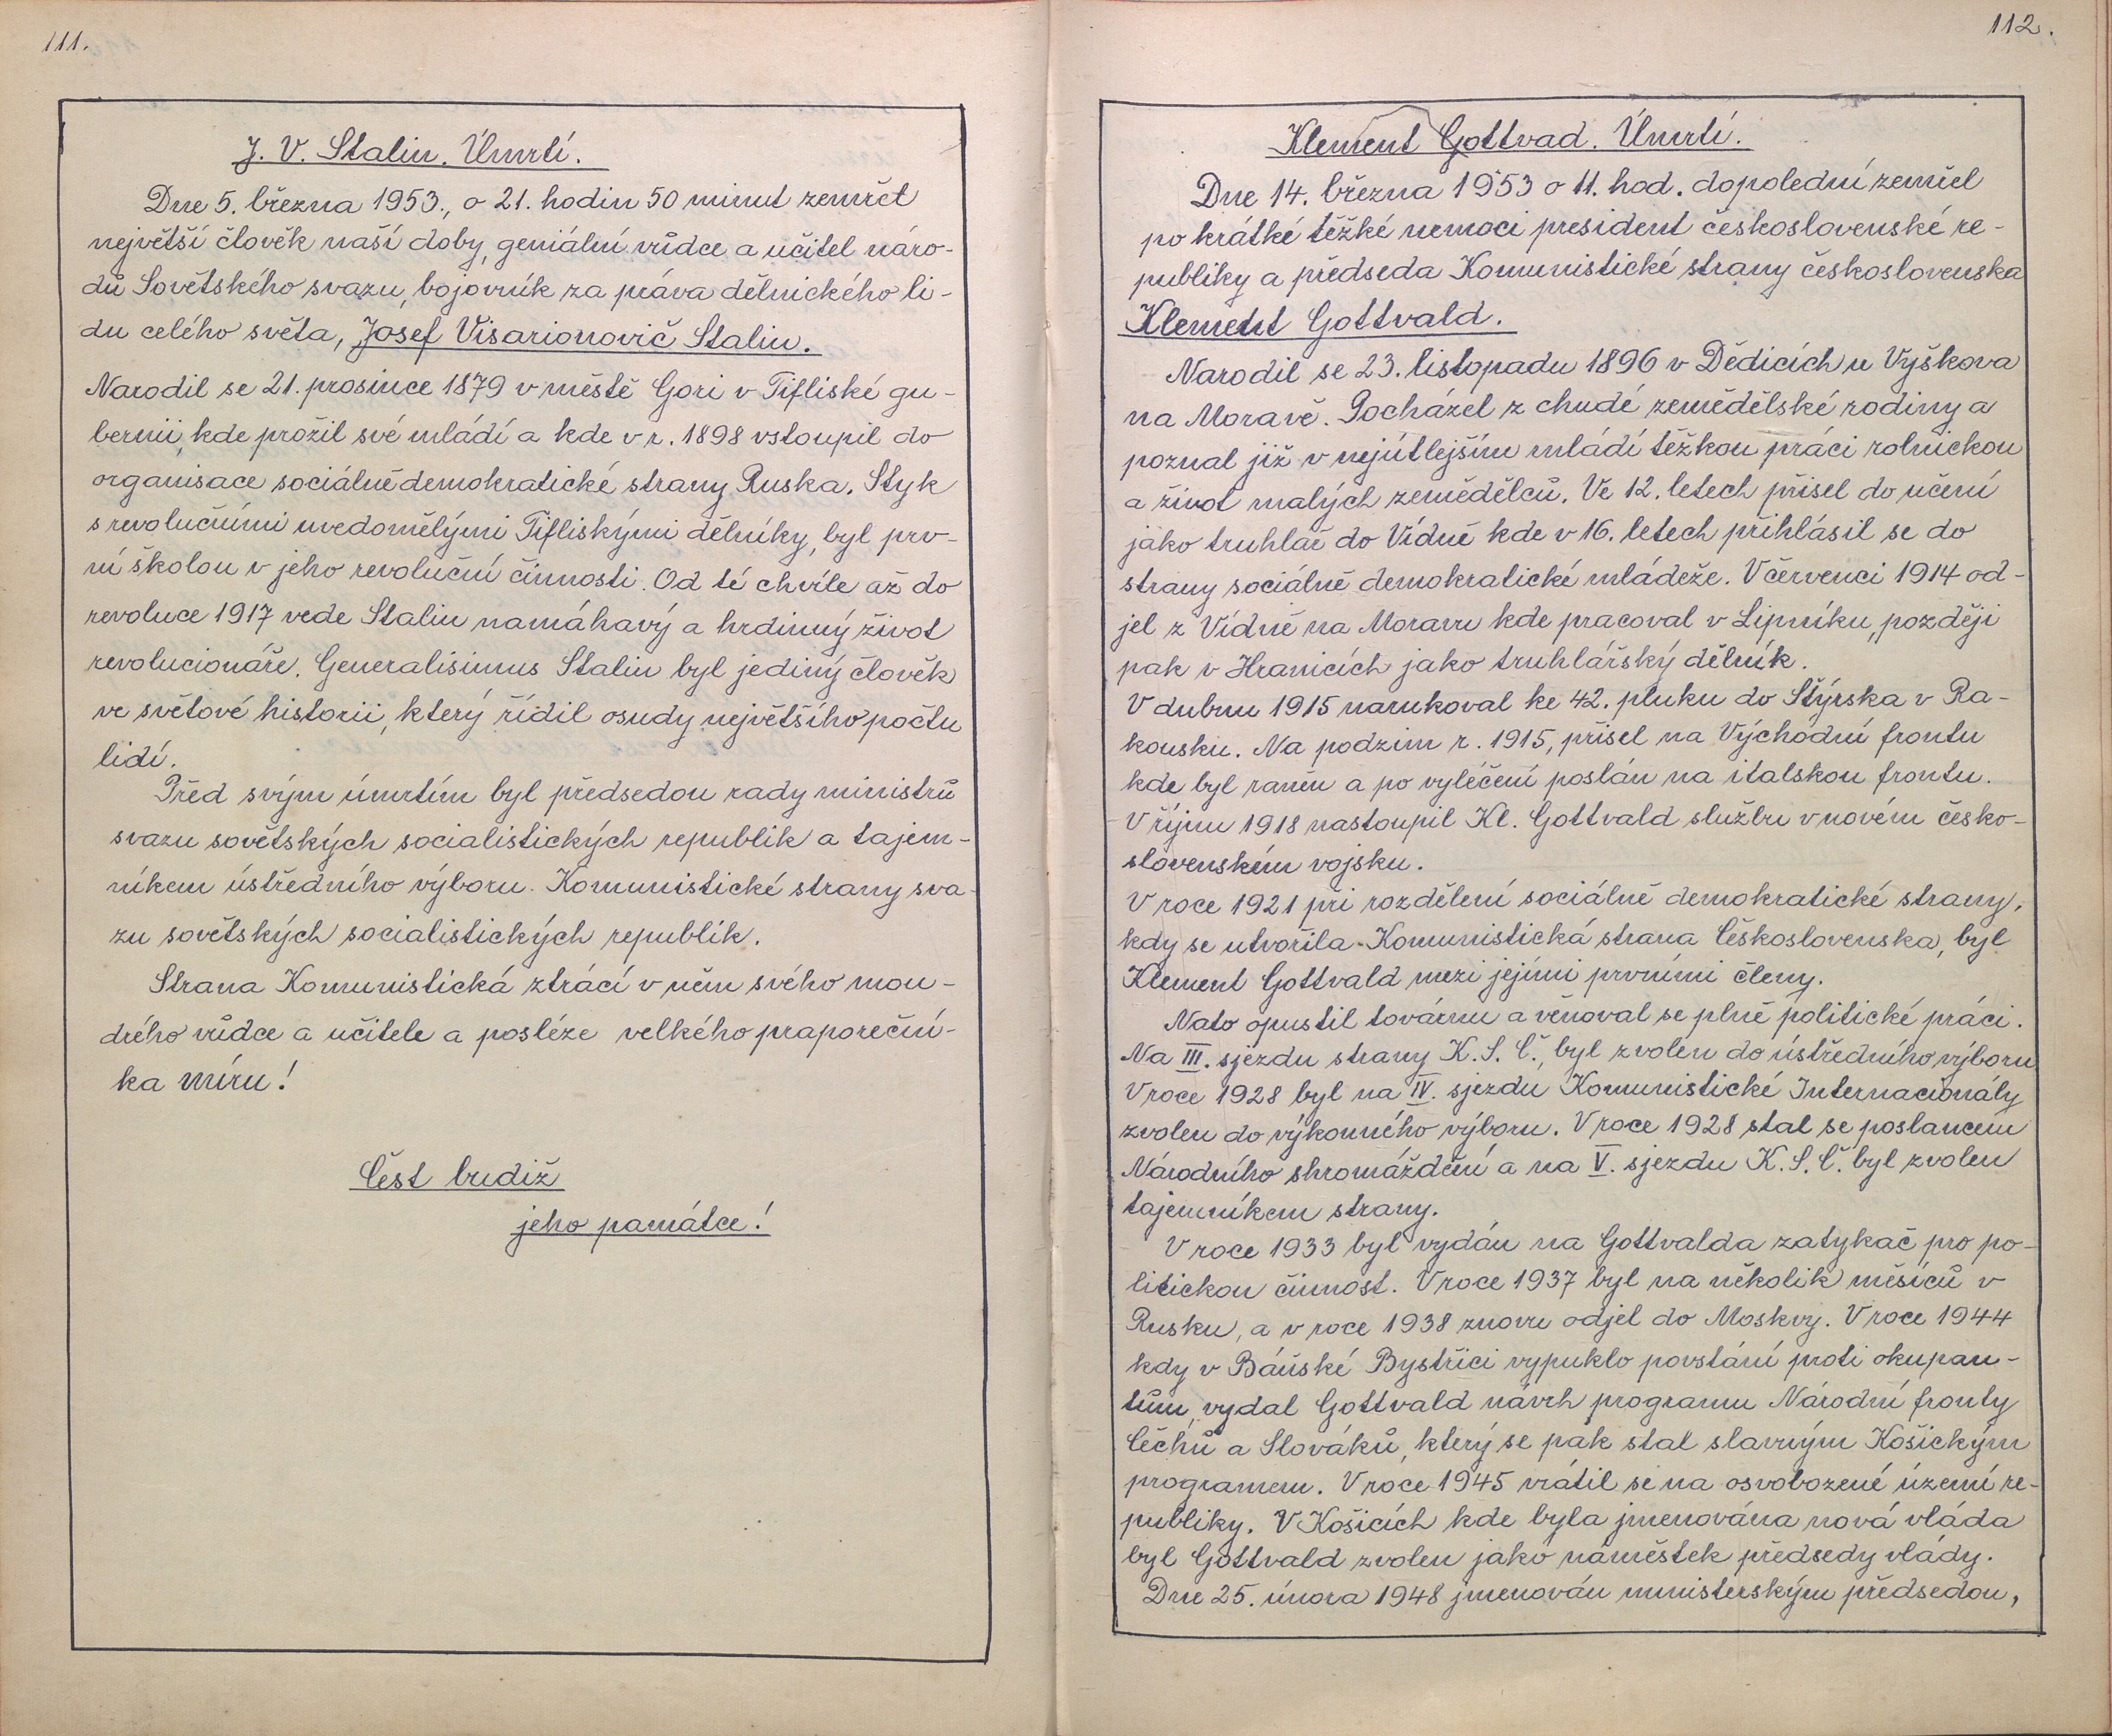 111.
J. V. Stalin. Úmrtí.
Dne 5. března 1953., o 21. hodin 50 minut zemřel
největší člověk naší doby, geniální vůdce a učitel náro-
dů Sovětského svazu, bojovník za práva dělnického li-
du celého světa, Josef Visarionovič Stalin.
Narodil se 21. prosince 1879 v městě Gori v Tifliské gu-
bernii, kde prožil své mládí a kde v r. 1898 vstoupil do
organisace sociálně demokratické strany Ruska. Styk
s revolučními uvedomělými Tifliskými dělníky, byl prv-
ní školou v jeho revoluční činnosti. Od té chvíle až do
revoluce 1917 vede Stalin namáhavý a hrdinný život
revolucionáře. Generalisimus Stalin byl jediný člověk
ve světové historii, který řídil osudy největšího počtu
lidí.
Před svým úmrtím byl předsedou rady ministrů
svazu sovětských socialistických republik a tajem-
níkem ústředního výboru. Komunistické strany sva-
zu sovětských socialistických republik.
Strana Komunistická ztrácí v něm svého mou-
drého vůdce a učitele a posléze velkého praporeční-
ka míru!
Čést budiž
jeho památce!
112.
Klement Gottvad. Úmrtí.
Dne 14. března 1953 o 11. hod. dopolední zemřel
po krátké těžké nemoci president československé re-
publiky a předseda Komunistické strany československa
Klement Gottvald.
Narodil se 23. listopadu 1896 v Dědicích u Vyškova
na Moravě. Pocházel z chudé zemědělské rodiny a
poznal již v nejútlejším mládí těžkou práci rolnickou
a život malých zemědělců. Ve 12. letech přisel do učení
jako truhlář do Vídně kde v 16. letech přihlásil se do
strany sociálně demokratické mládeže. V červenci 1914 od-
jel z Vídně na Moravu kde pracoval v Lipníku, později
pak v Hranicích jako truhlářský dělník.
V dubnu 1915 narukoval ke 42. pluku do Štýrska v Ra-
kousku. Na podzim r. 1915, přisel na Východní frontu
kde byl raněn a po vyléčení poslán na italskou frontu.
V říjnu 1918 nastoupil Kl. Gottvald službu v novém česko-
slovenském vojsku.
V roce 1921 při rozdělení sociálně demokratické strany,
kdy se utvořila Komunistická strana Československa, byl
Klement Gottvald mezi jejími prvními členy.
Nato opustil továrnu a věnoval se plně politické práci.
Na III. sjezdu strany K. S. Č., byl zvolen do ústředního výboru
V roce 1928 byl na IV. sjezdu Komunistické Internacionály
zvolen do výkonného výboru. V roce 1928 stal se poslancem
Národního shromáždění a na V. sjezdu K. S. Č. byl zvolen
tajemníkem strany.
V roce 1933 byl vydán na Gottvalda zatykač pro po-
litickou činnost. V roce 1937 byl na několik měsíců v
Rusku, a v roce 1938 znovu odjel do Moskvy. V roce 1944
kdy v Báňské Bystřici vypuklo povstání proti okupan-
tům, vydal Gottvald návrh programu Národní fronty
Čechů a Slováků, který se pak stal slavným Košickým
programem. V roce 1945 vrátil se na osvobozené území re-
publiky. V Košicích kde byla jmenována nová vláda
byl Gottvald zvolen jako náměstek předsedy vlády.
Dne 25. února 1948 jmenován ministerským předsedou,